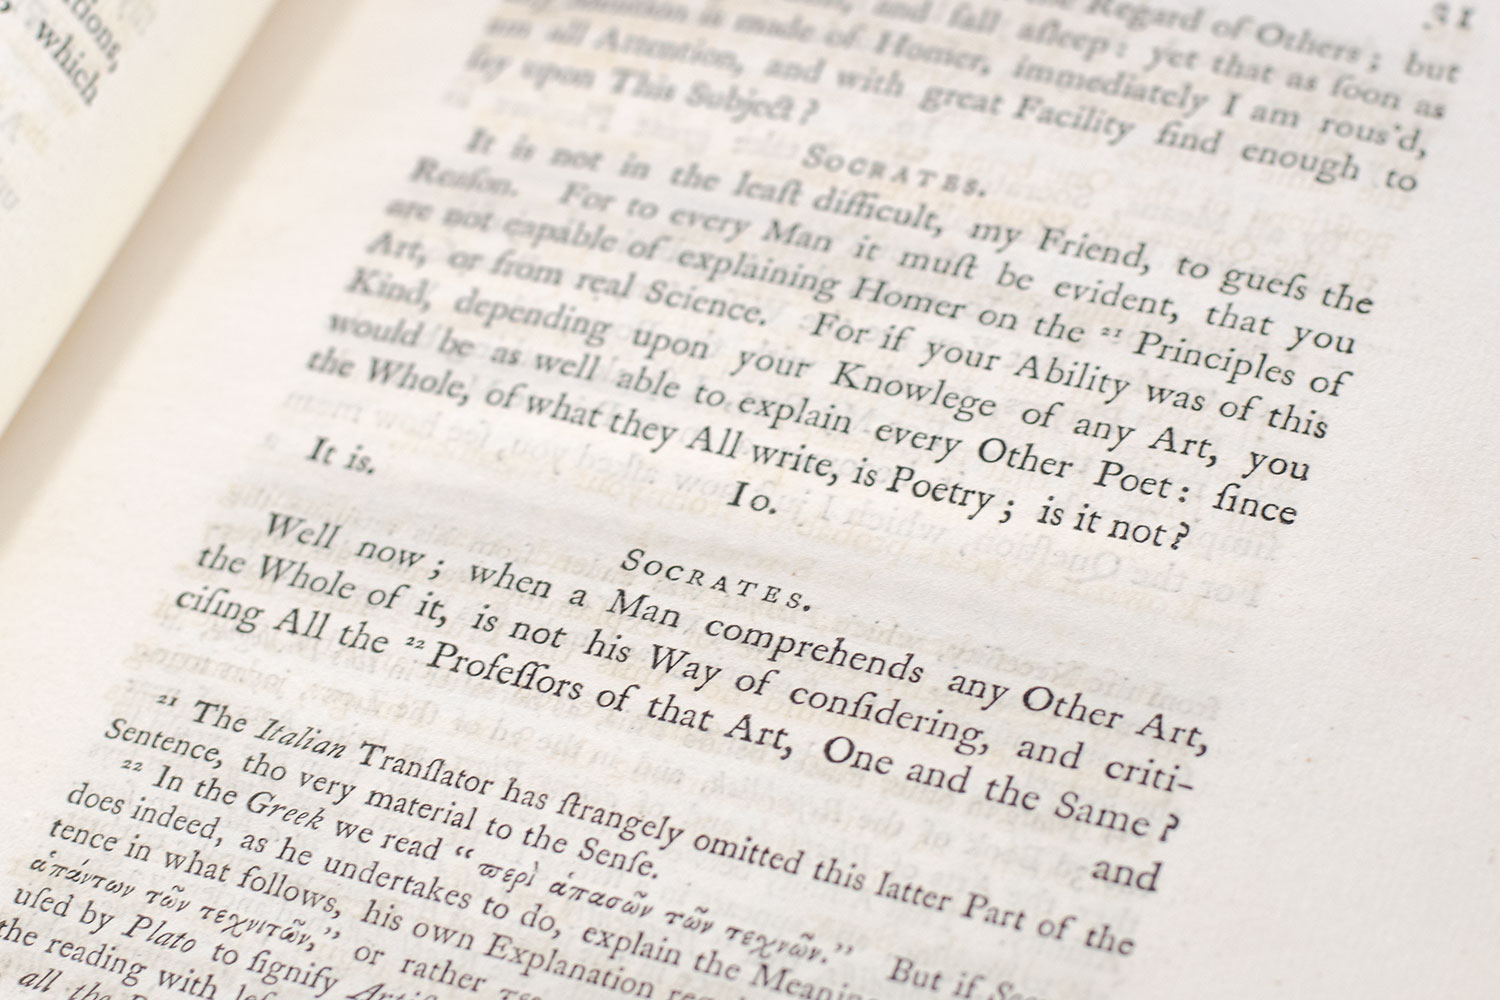 tions,
, which
31
the Regard of Others; but
and fall aſleep: yet that as ſoon as
is made of Homer, immediately I am rous'd,
am all Attention, and with great Facility find enough to
ſay upon This Subject?
SOCRATES.
It is not in the leaſt difficult, my Friend, to gueſs the
Reaſon. For to every Man it muſt be evident, that you
are not capable of explaining Homer on the ²¹ Principles of
Art, or from real Science. For if your Ability was of this
Kind, depending upon your Knowlege of any Art, you
would be as well able to explain every Other Poet: ſince
the Whole, of what they All write, is Poetry; is it not?
IO.
It is.
SOCRATES.
Well now; when a Man comprehends any Other Art,
the Whole of it, is not his Way of conſidering, and criti-
ciſing All the ²² Profeſſors of that Art, One and the Same?
and
²¹ The Italian Tranſlator has ſtrangely omitted this latter Part of the
Sentence, tho very material to the Senſe.
²² In the Greek we read “ϖερὶ ἁπασῶν τῶν τεχνῶν.” But if
does indeed, as he undertakes to do, explain the
tence in what follows, his own Explanation
ἁπάντων τῶν τεχνιτῶν,” or rather
uſed by Plato to ſignify
the reading with
all the